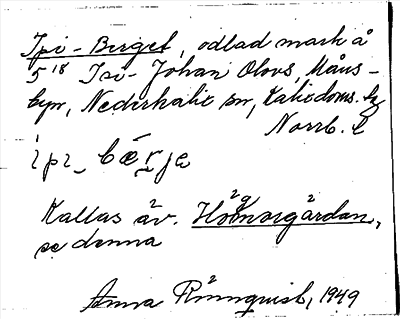 Ipi-Berget, odlad mark å
5¹⁸ Isi-Johan Olovs, Måns-
byn, Nederkalix sn, Kalix doms. hg
Norrb. l
Kallas äv.
se denna
Anna Rönnquist, 1949